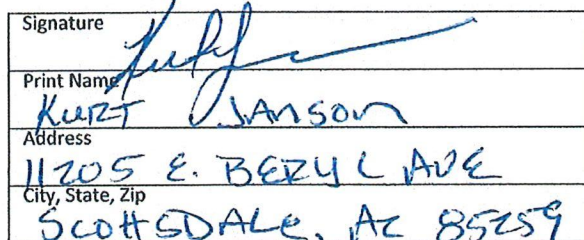 Signature
Print Name
KURT JANSON
Address
11205 E. BERYL AVE
City, State, Zip
SCOTTSDALE, AZ 85259